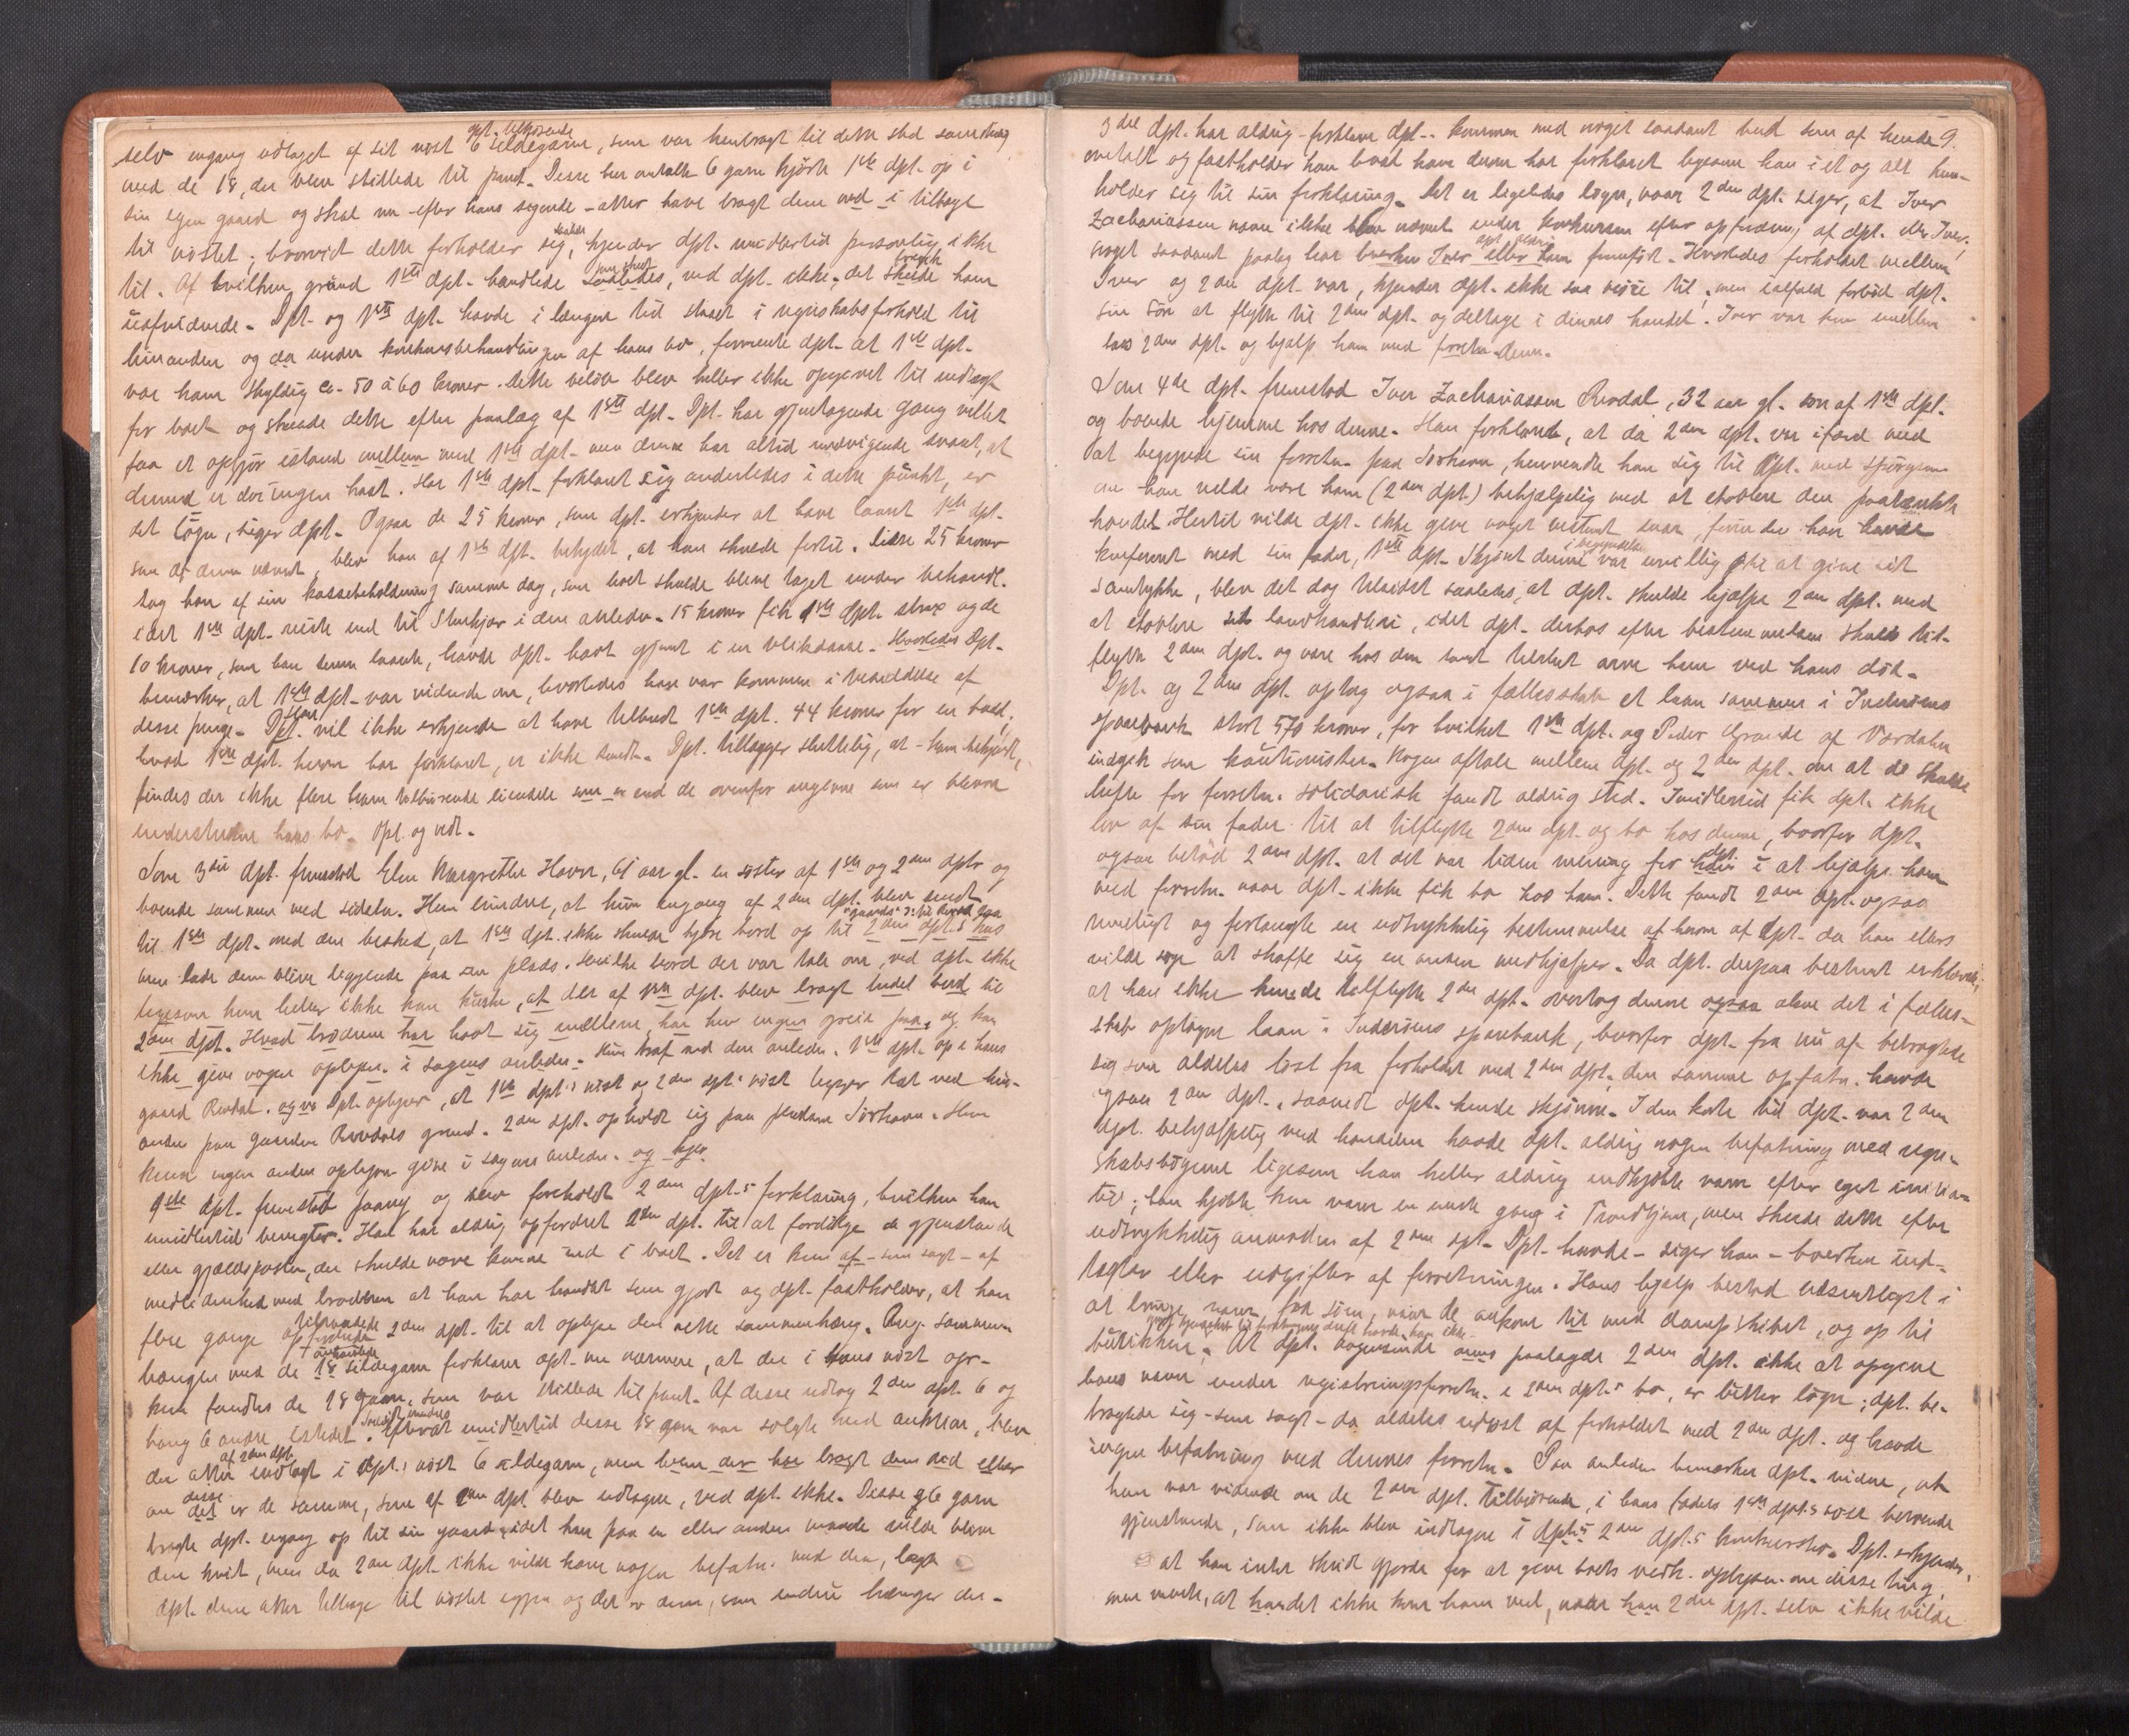 dpt. tilhørende
selv engang udtaget af sit nøst 6 sildegarne, som var henbragt til dette sted samtidig
med de 18, der blev stillede til pant. Disse her omtalte 6 garn kjørte 1ste dpt. op i
sin egen gaard og skal nu efter hans sigende - atter have bragt dem ned i tilbage
til nøstet; hvorvidt dette forholder sig, kjender dpt. imidlertid personlig ikke
til. Af hvilken grund 1ste dpt. handlede saaledes, ved dpt. ikke; det skede ham
uafvidende. Dpt. og 1ste dpt. havde i længere tid staaet i regnskabsforhold til
hinanden og da under konkursbehandlingen af hans bo, formente dpt. at 1ste dpt.
var ham skyldig ca. 50 à 60 kroner. Dette beløb blev heller ikke opgivet til indtægt
for boet og skeede dette efter paalæg af 1ste dpt. Dpt. har gjentagende gang villet
faa et opgjør istand mellem med 1ste dpt. men denne har altid undvigende svaret, at
dermed er der ingen hast. Har 1ste dpt. forklaret sig anderledes i dette punkt, er
det løgn, siger dpt. Ogsaa de 25 kroner, som dpt. erkjender at have laant 1ste dpt.
som af denne nævnt, blev han af 1ste dpt. betydet, at han skulde fortie. Disse 25 kroner
tog han af sin kassebeholdning samme dag, som boet skulde blive taget under behandl.
idet 1ste dpt. reiste ind til Stenkjær i den anledn. 15 kroner fik 1ste dpt. strax og de
10 kroner, som han senere laante, havde dpt. havt gjemt i en blikdaase. Hvorledes Dpt.
bemærker, at 1ste dpt. var vidende om, hvorledes han var kommen i besiddelse af
disse penge. Dpt. vil ikke erkjende at have tilbudt 1ste dpt. 44 kroner for en baad;
hvad 1ste dpt. herom har forklaret, er ikke sandt. Dpt. tillægger sluttelig, at
findes der ikke flere ham tilhørende eiendele end de ovenfor angivne som er blevne
understukne hans bo. Opl. og vedt.
Som 3die dpt. fremstod Elen Margrethe Havn, 61 aar gl. en søster af 1ste og 2den dpt. og
boende sammen med sidstn. Hun erindrer, at hun engang af 2den dpt. blev sendt
til 1ste dpt. med den besked, at 1ste dpt. ikke skulde kjøre bord op til 2den dpt.s hus
men lade dem blive liggende paa sin plads. Hvilke bord der var tale om, ved dpt. ikke
ligesom hun heller ikke kan huske, at der af 1ste dpt. blev bragt indet bord til
2den dpt. Hvad brødrene har havt sig imellem, har hun ingen greie paa, og kan
ikke give nogen oplysn. i sagens anledn. Hun traf med den anledn. 1ste dpt. op i hans
gaard Rindal. og va Dpt. oplyser, at 1ste dpt.s nøst og 2den dpt.s nøst ligger tæt ved hin-
anden paa gaarden Rindals grund. 2den dpt. opholdt sig paa pladsen Sørhavn. Hun
kan ingen anden oplysn. give i sagens anledn. og hjer
1ste dpt. fremstod paany og blev foreholdt 2den dpt.s forklaring, hvilken han
imidlertid benegter. Han har aldrig opfordret 2den dpt. til at fordølge de gjenstande
eller gjældsposter, der skulde være komne ind i boet. Det er kun af - som sagt - af
medlidenhed med broderen at han har handlet som gjort og dpt. fastholder, at han
flere gange tilraadede 2den dpt. til at oplyse den rette sammenhæng. Ang. sammen-
hængen med de 18 sildegarn forklarer dpt. nu nærmere, at der i hans nøst op-
kun fandtes de 18 garn, som var stillede til pant. Af disse udtog 2den dpt. 6 og
hang 6 andre istedet. Efterat imidlertid disse 18 garn var solgte ved auktion, blev
der atter af 2den dpt. indlagt i dpt.s nøst 6 sildegarn, men hvem der har bragt dem ned eller
om disse er de samme, som af 2den dpt. blev udtagne, ved dpt. ikke. Disse 6 garn
bragte dpt. engang op til sin gaard idet han paa en eller anden maade vilde blive
dem kvit, men da 2den dpt. ikke vilde have nogen befatn. med dem, lagde
dpt. dem atter tilbage til nøstet igjen og det er dem, som endnu hænger der.
9.
3die dpt. har aldrig - forklarer dpt. - kommen med noget saadant bud som af hende
omtalt og fastholder han hvad han derom har forklaret ligesom han i et og alt hen-
holder sig til sin forklaring. Det er ligeledes løgn, naar 2den dpt. siger, at Iver
Zachariassen navn ikke blev nævnt under konkursen efter opfordring af dpt. eller Iver;
noget saadant paalæg har hverken Iver eller ham fremført. Hvorledes forholdet mellem
Iver og 2den dpt. var, kjender dpt. ikke saa nøie til; men ialfald forbød dpt.
sin søn at flytte til 2den dpt. og deltage i dennes handel. Iver var kun imellem
hos 2den dpt. og hjalp ham med forretn. dem.
Som 4de dpt. fremstod Iver Zachariassen Rindal, 32 aar gl. søn af 1ste dpt.
og boende hjemme hos denne. Han forklarede, at da 2den dpt. var ifærd med
at begynde sin forretn. paa Sørhavn, henvendte han sig til dpt. med spørgsm.
om han vilde være ham (2den dpt.) behjælpelig med at etablere den paatænkte
handel. Hertil vilde dpt. ikke give noget bestemt svar, førinden han havde
konfereret med sin fader, 1ste dpt. Skjønt denne i begyndelsen var uvillig til at give sit
samtykke, blev det dog tilsidst saaledes, at dpt. skulde hjælpe 2den dpt. med
at etablere sit landhandleri, idet dpt. derhos efter bestemmelsen skulde til-
flytte 2den dpt. og være hos den samt tilsidst arve ham ved hans død.
Dpt. og 2den dpt. optog ogsaa i fællesskab et laan sammen i Inderøens
sparebank stort 570 kroner, for hvilket 1ste dpt. og Peder Grande af Værdalen
indgik som kautionister. Nogen aftale mellem dpt. og 2den dpt. om at de skulde
hefte for forretn. solidarisk fandt aldrig sted. Imidlertid fik dpt. ikke
lov af sin fader til at tilflytte 2den dpt. og bo hos denne, hvorfor dpt.
ogsaa betød 2den dpt. at det var liden mening for dpt. i at hjælpe ham
med forretn. naar dpt. ikke fik bo hos ham. Dette fandt 2den dpt. ogsaa
rimeligt og forlangte en udtrykkelig bestemmelse af herom af dpt. da han ellers
vilde søge at skaffe sig en anden medhjælper. Da dpt. derpaa bestemt erklærede,
at han ikke kunde tilflytte 2den dpt. overtog denne ogsaa alene det i fælles-
skab optagne laan i Inderøens sparebank, hvorfor dpt. fra nu af betragtede
sig som aldeles løst fra forholdet med 2den dpt.; den samme opfatn. havde
ogsaa 2den dpt., saavidt dpt. kunde skjønne. I den korte tid dpt. var 2den
dpt. behjælpelig ved handelen havde dpt. aldrig nogen befatning med regn-
skabsbøgerne ligesom han heller aldrig indkjøbte varer efter eget initia-
tiv; han kjøbte kun varer en enste gang i Trondhjem, men skeede dette efter
udtrykkelig anmodn. af 2den dpt. Dpt. havde - siger han - hverken ind-
tægter eller udgifter af forretningen. Hans hjælp bestod væsentligst i
at bringe varer fra søen, naar de ankom til med dampskibet, og op til
butikken. At dpt. nogensinde paalagde 2den dpt. ikke at opgive
hans navn under registreringsforretn. i 2den dpt.s bo, er bitter løgn; dpt. be-
tragtede sig - som sagt - da aldeles udløst af forholdet med 2den dpt. og havde
ingen befatning med dennes forretn. Paa anledn. bemærker dpt. videre, at
han var vidende om de 2den dpt. tilhørende, i hans faders 1ste dpt.s nøst beroende
gjenstande, som ikke blev indtagne i 2den dpt.s konkursbo. Dpt. erkjender,
at han intet skridt gjorde for at give boets vedk. oplysn. om disse ting,
men mente, at det ikke kom ham ved, naar han 2den dpt. selv ikke vilde